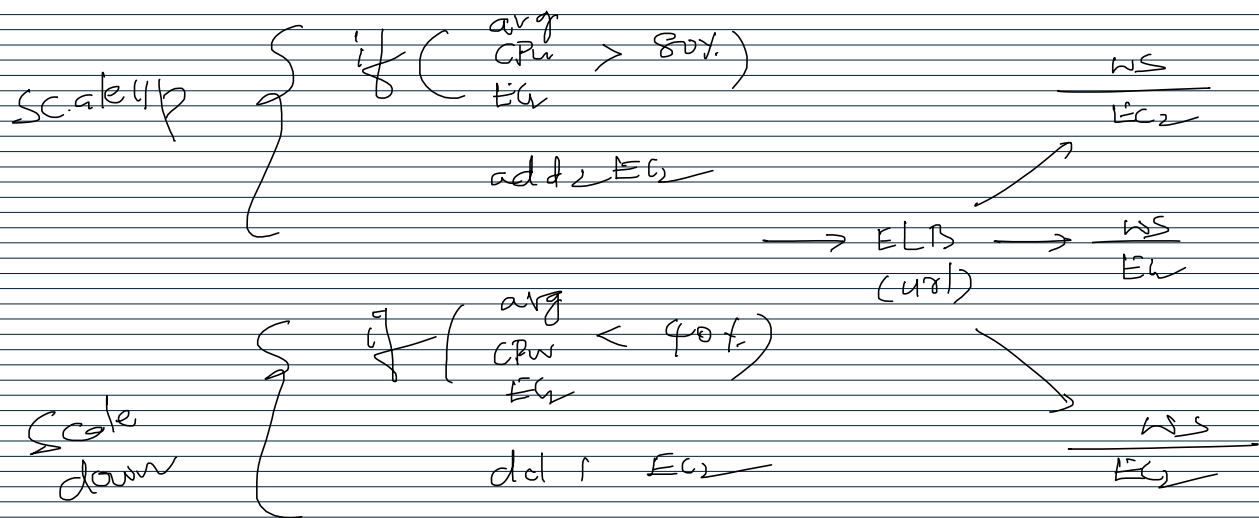 Scale Up
if ( avg
CPU > 80% )
EC2
add 2 EC2
Scale
down
if ( avg
CPU < 40% )
EC2
del 1 EC2
→ ELB →
(url)
WS
EC2
WS
EC2
WS
EC2